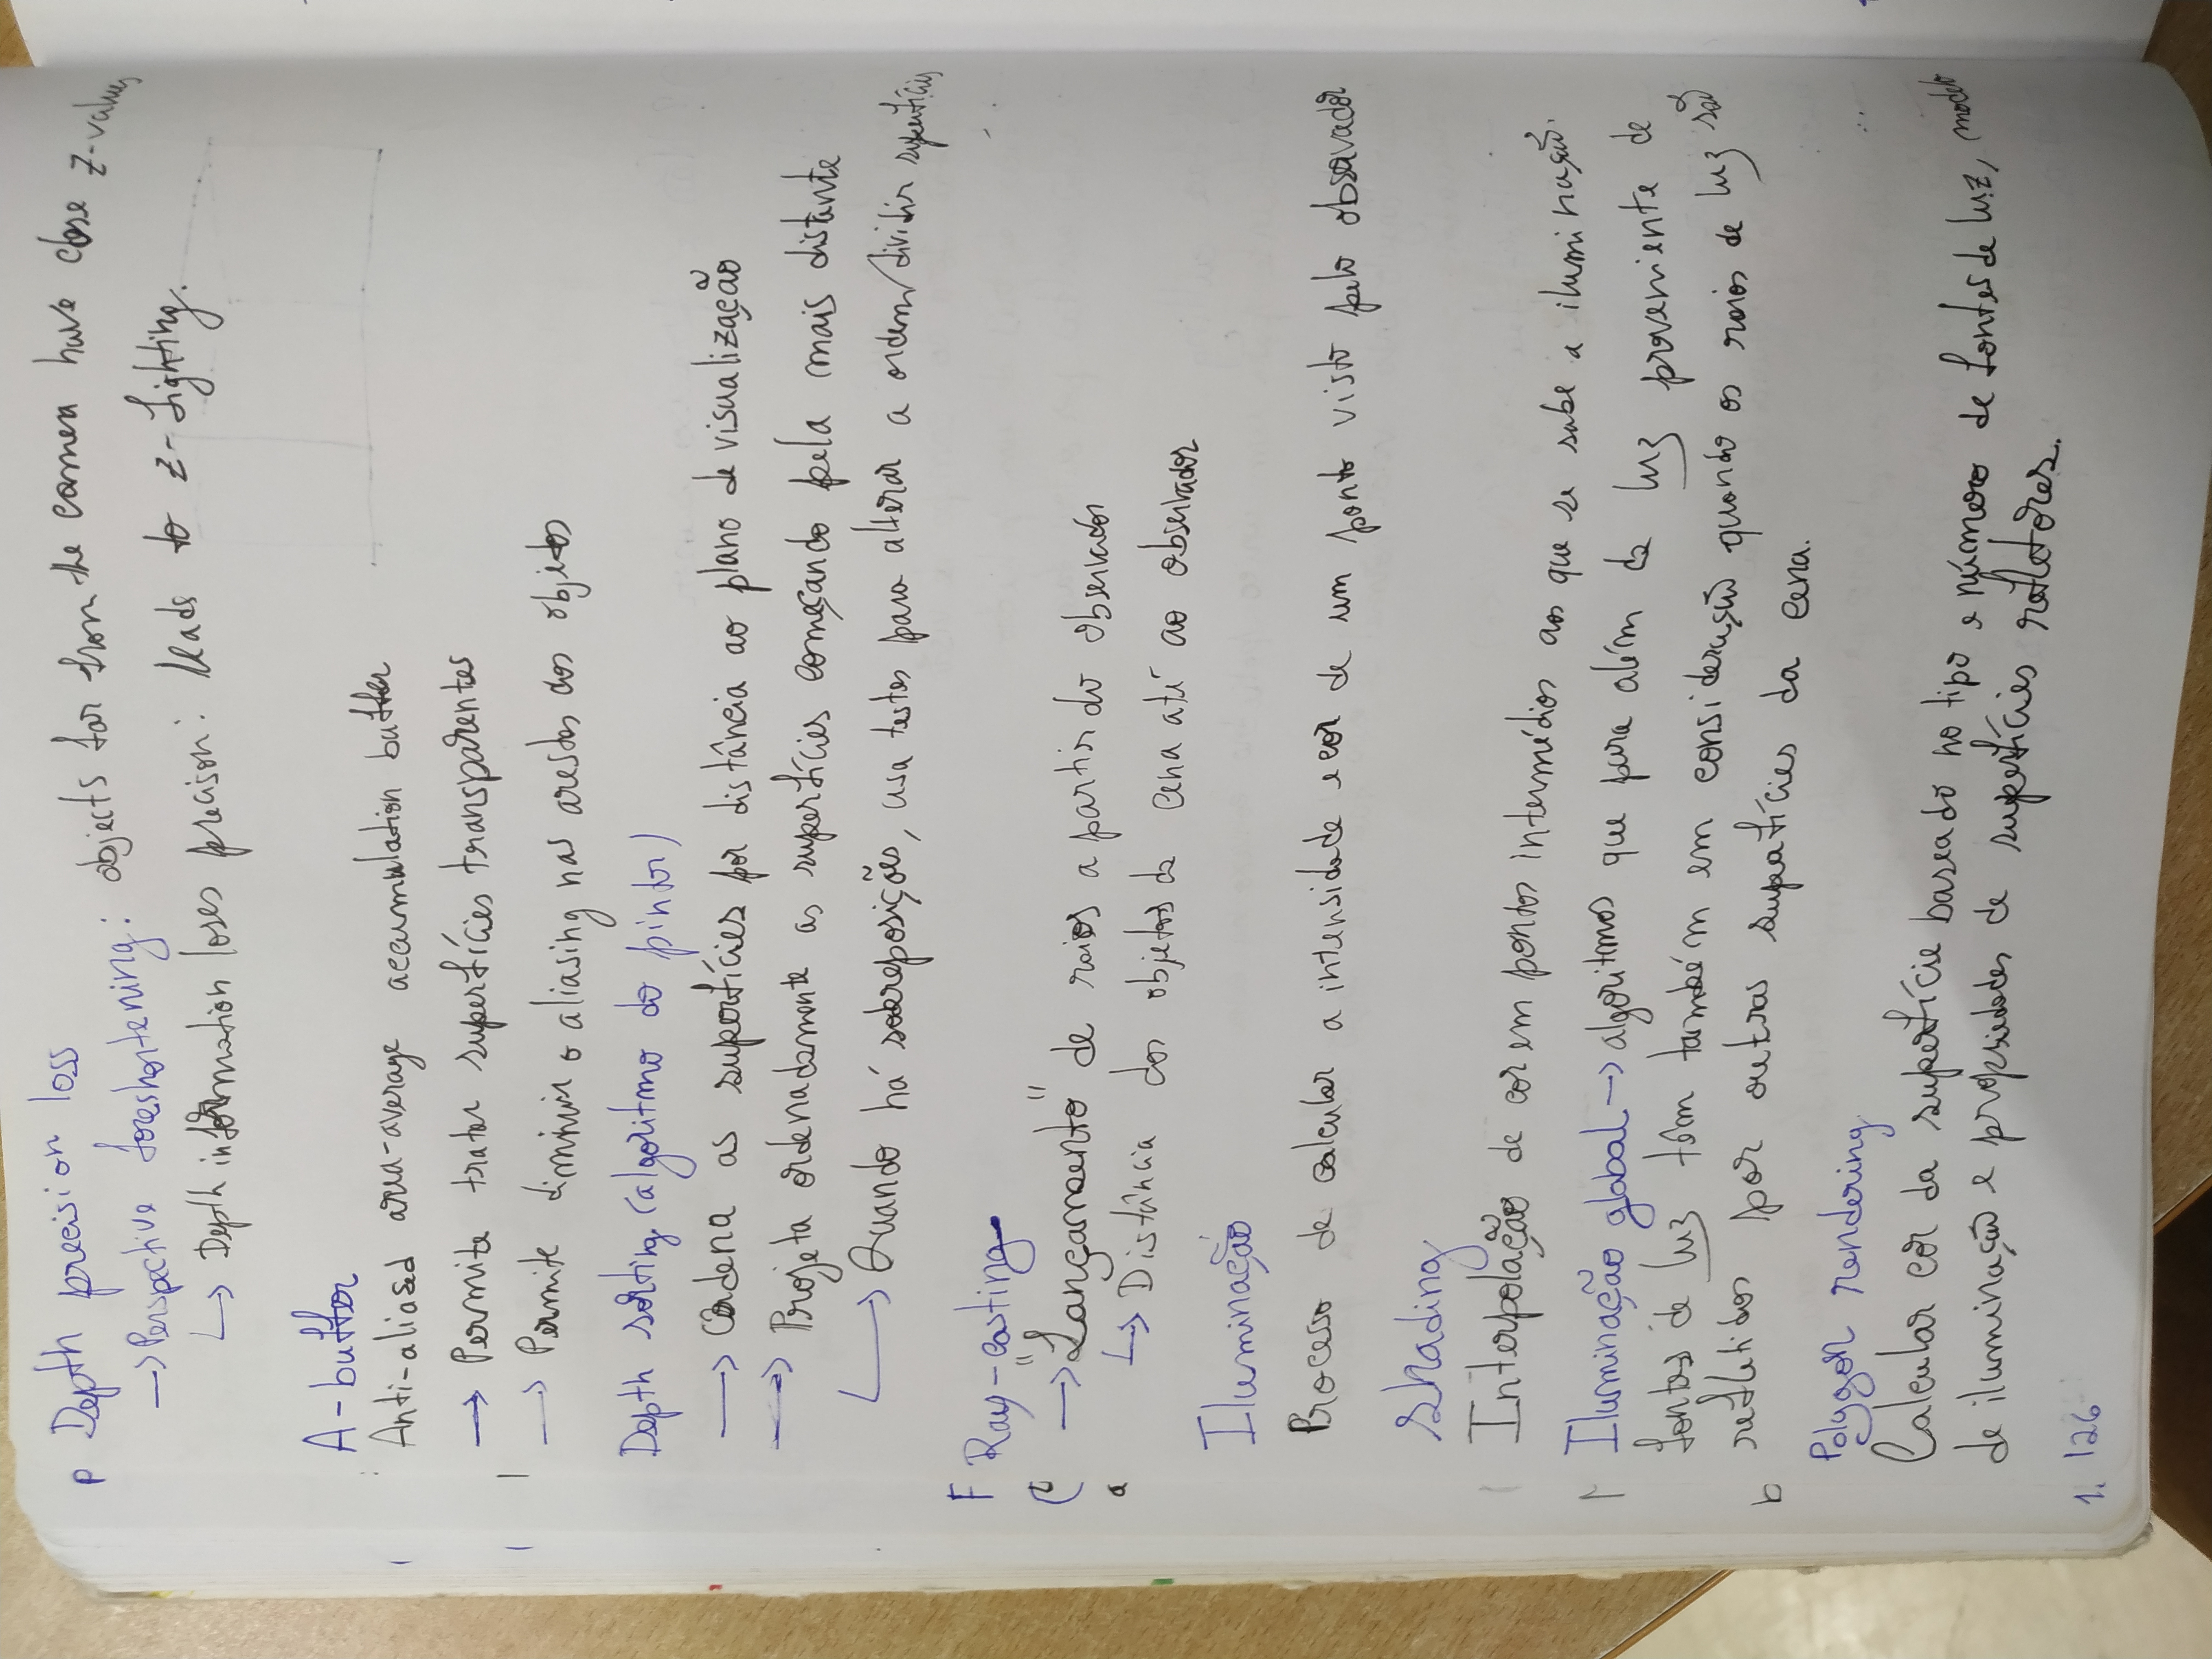 Depth precision loss
→ Perspective foreshortening: objects far from the camera have close z-values
↳ Depth information loses precison: leads to z-fighting.
A-buffer
Anti-aliased area-average accumulation buffer
→ Permite tratar superfícies transparentes
→ Permite diminuir o aliasing nas arestas dos objetos
Depth sorting (algoritmo do pintor)
→ Ordena as superfícies por distância ao plano de visualização
→ Projeta ordenadamente as superfícies começando pela mais distante
↳ Quando há sobreposições, usa testes para alterar a ordem/dividir superfícies
Ray-casting
→ "Lançamento" de raios a partir do observador
↳ Distância dos objetos da cena até ao observador
Iluminação
Processo de calcular a intensidade e cor de um ponto visto pelo observador
Shading
Interpolação de cor em pontos intermédios aos que se sabe a iluminação.
Iluminação global → algoritmos que para além da luz proveniente de
fontes de luz têm também em consideração quando os raios de luz são
refletidos por outras superfícies da cena.
Polygon rendering
Calcular cor da superfície baseado no tipo e número de fontes de luz, modelo
de iluminação e propriedades de superfícies refletores.
126